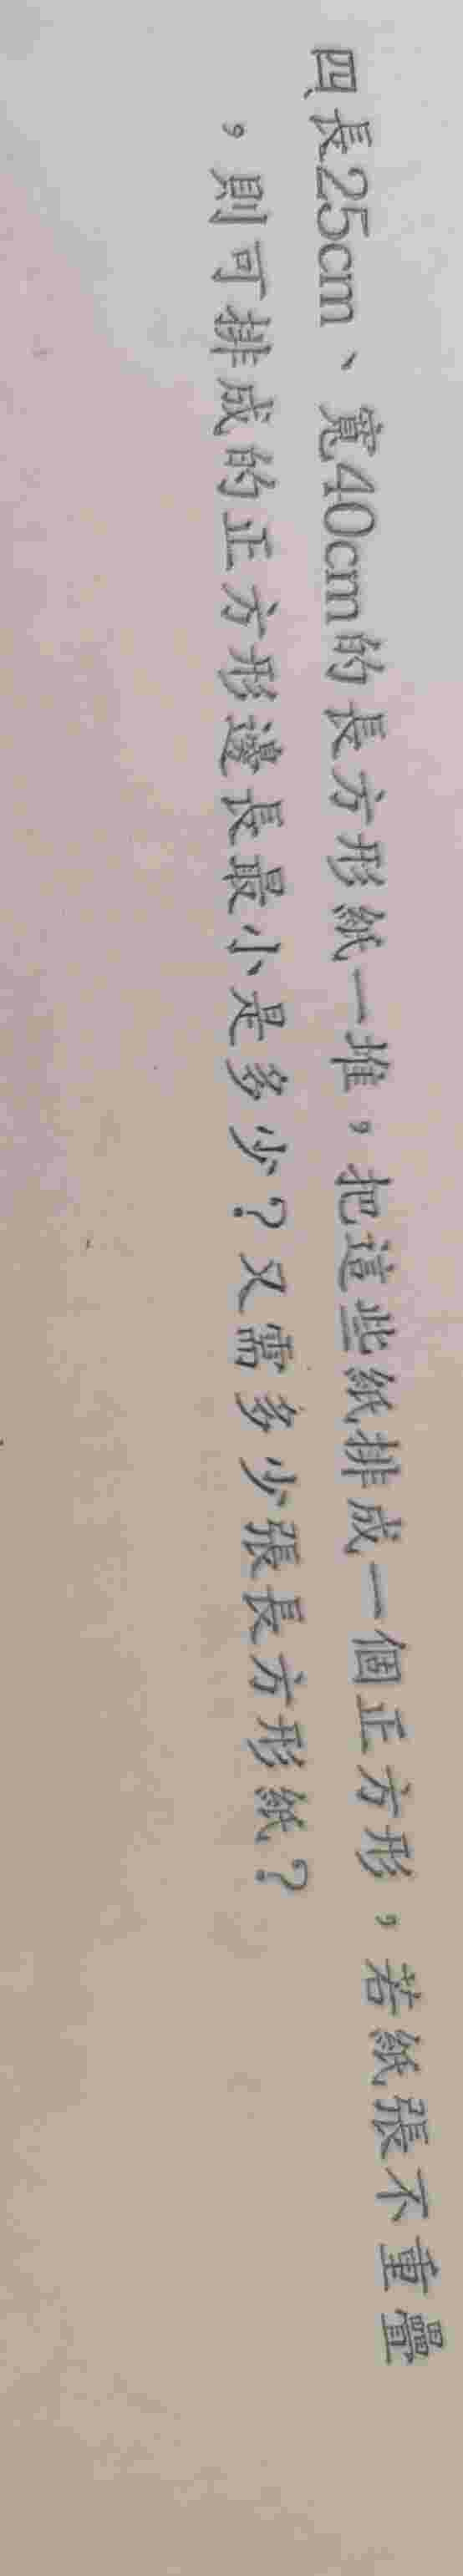 四、長25cm、寬40cm的長方形紙一堆，把這些紙排成一個正方形，若紙張不重疊
，則可排成的正方形邊長最小是多少？又需多少張長方形紙？